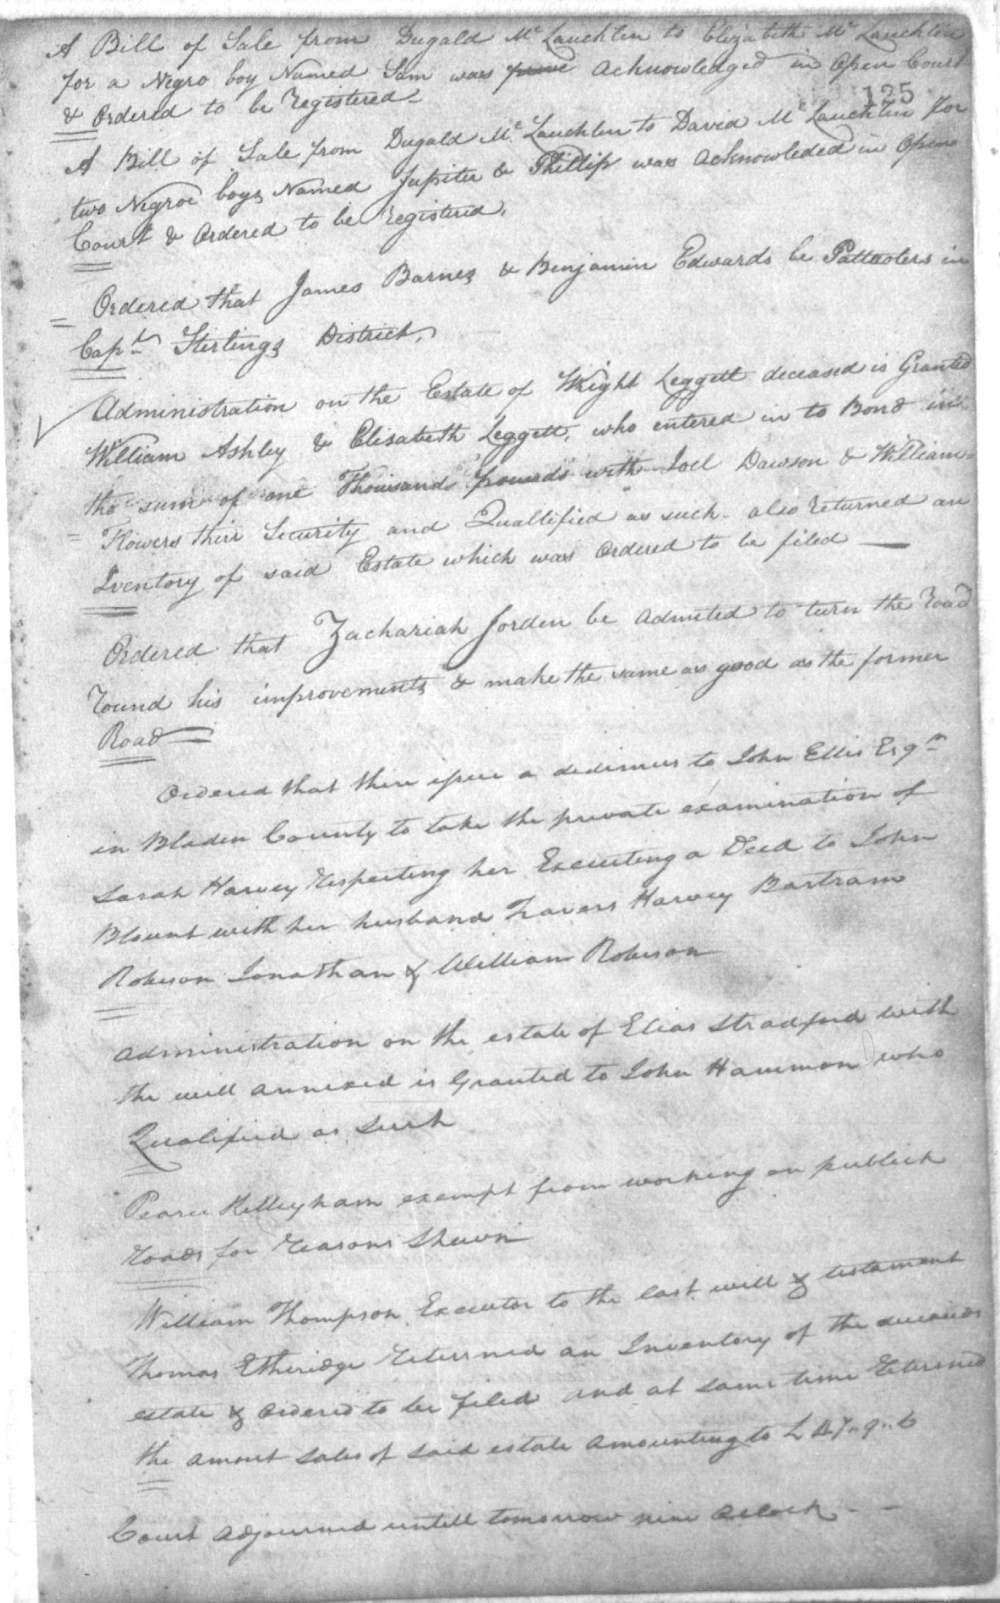 A Bill of Sale from Dugald Mc Lauchlin to Elizabeth Mc Lauchlin
for a Negro boy Named Sam was prove acknowledged in Open Court
& Ordered to be Registered
125
A Bill of Sale from Dugald Mc Lauchlin to David Mc Lauchlin for
two Negroe boys Named Jupiter & Phillip was acknowleded in Open
Court & Ordered to be Registered.
Ordered that James Barnes & Benjamin Edwards be Pattrolers in
Capt Sterlings District.
Administration on the Estate of Wright Leggett deceased is Granted
William Ashley & Elisabeth Leggett, who entered in to Bond in
the sum of one Thousand pounds with Joel Dawson & William
Flowers their Security and Quallified as such. also returned an
Iventory of said Estate which was Ordered to be filed
Ordered that Zachariah Jorden be Admited to turn the Road
Round his improvements & make the same as good as the former
Road
Ordered that there issue a dedimus to John Ellis Esqr
in Bladen County to take the private examination of
Sarah Harvey Respecting her Executing a Deed to John
Blount with her husband Travers Harvey Bartram
Robeson Jonathan & William Robeson
Administration on the estate of Elias Stradford with
the will annexed is Granted to John Hammon who
Qualified as Such
Pearce exempt from working on publick
Roads for Reasons Shewn
William Thompson Executor to the last will & testament
Thomas Etheridge Returned an Inventory of the deceaseds
estate & ordered to be filed and at same time Returned
the amout sales of said estate amounting to L
Court adjourned untill tomorrow nine Oclock